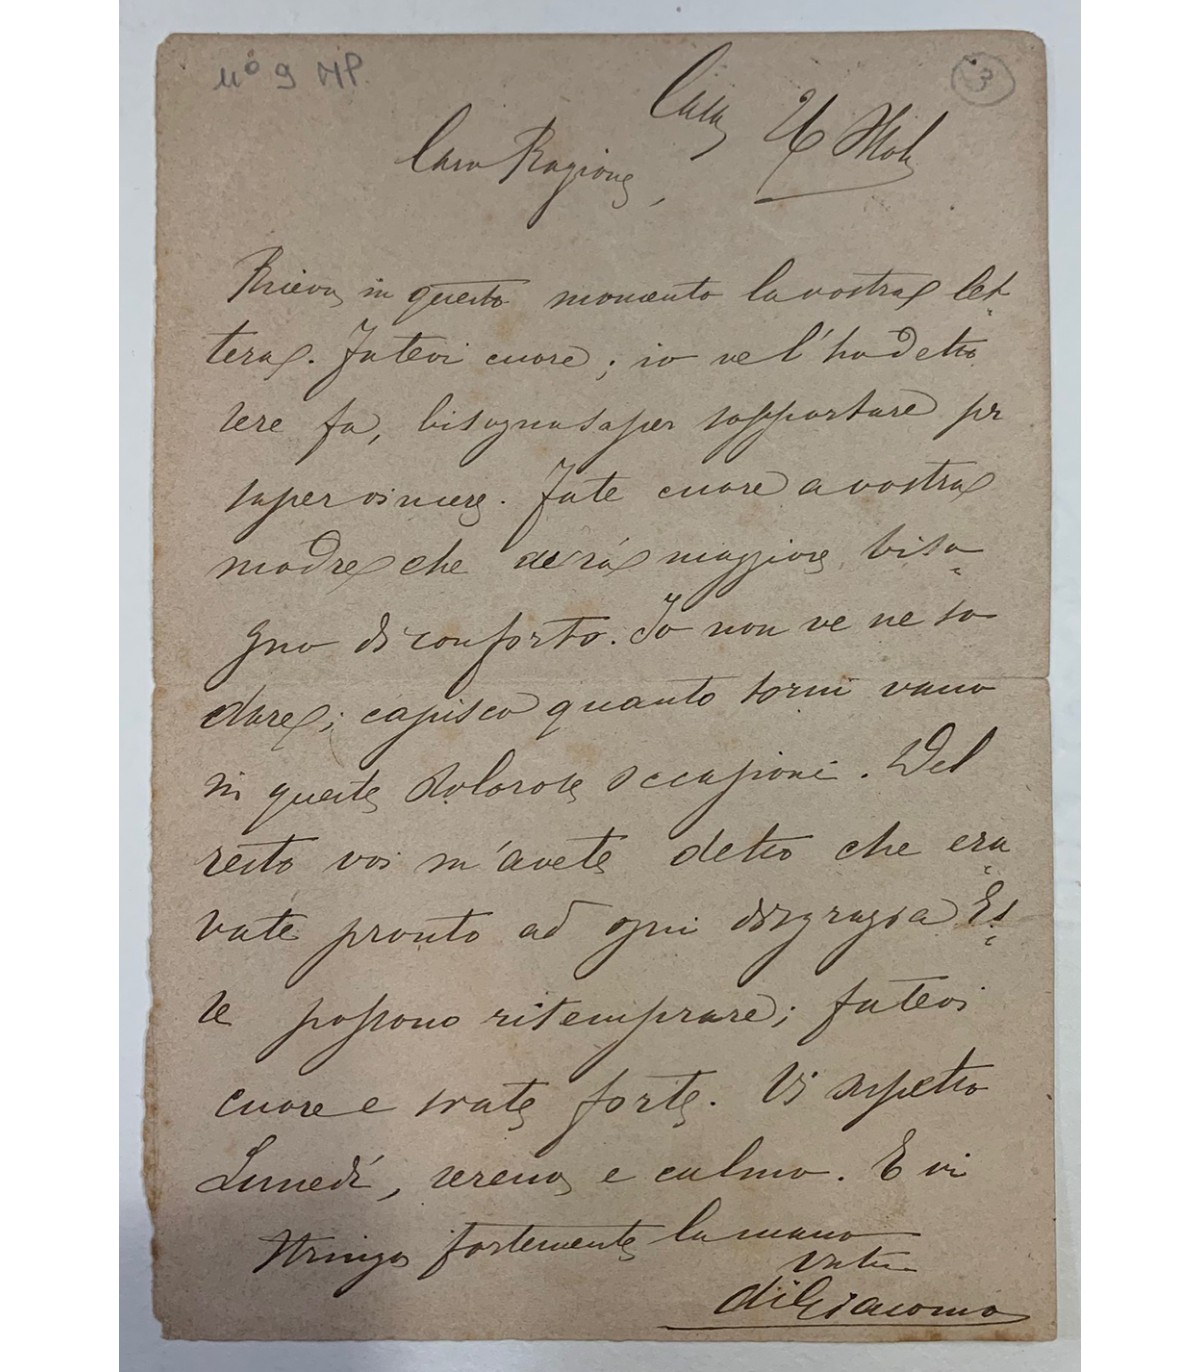 nº 9 MP
3
Casa, 26
Caro Ragione,
Ricevo in questo momento la vostra let-
tera. Fatevi cuore; io ve l'ho detto
sere fa, bisogna saper sopportare pr
saper vincere. Fate cuore a vostra
madre che avrà maggiore biso-
gno di conforto. Io non ve ne so
dare; capisco quanto torni vano
in queste dolorose occasioni. Del
resto voi m'avete detto che era-
vate pronto ad ogni disgrazia Es-
se possono ritemprare; fatevi
cuore e siate forte. Vi aspetto
Lunedí, sereno e calmo. E vi
stringo fortemente la mano
diGiacomo